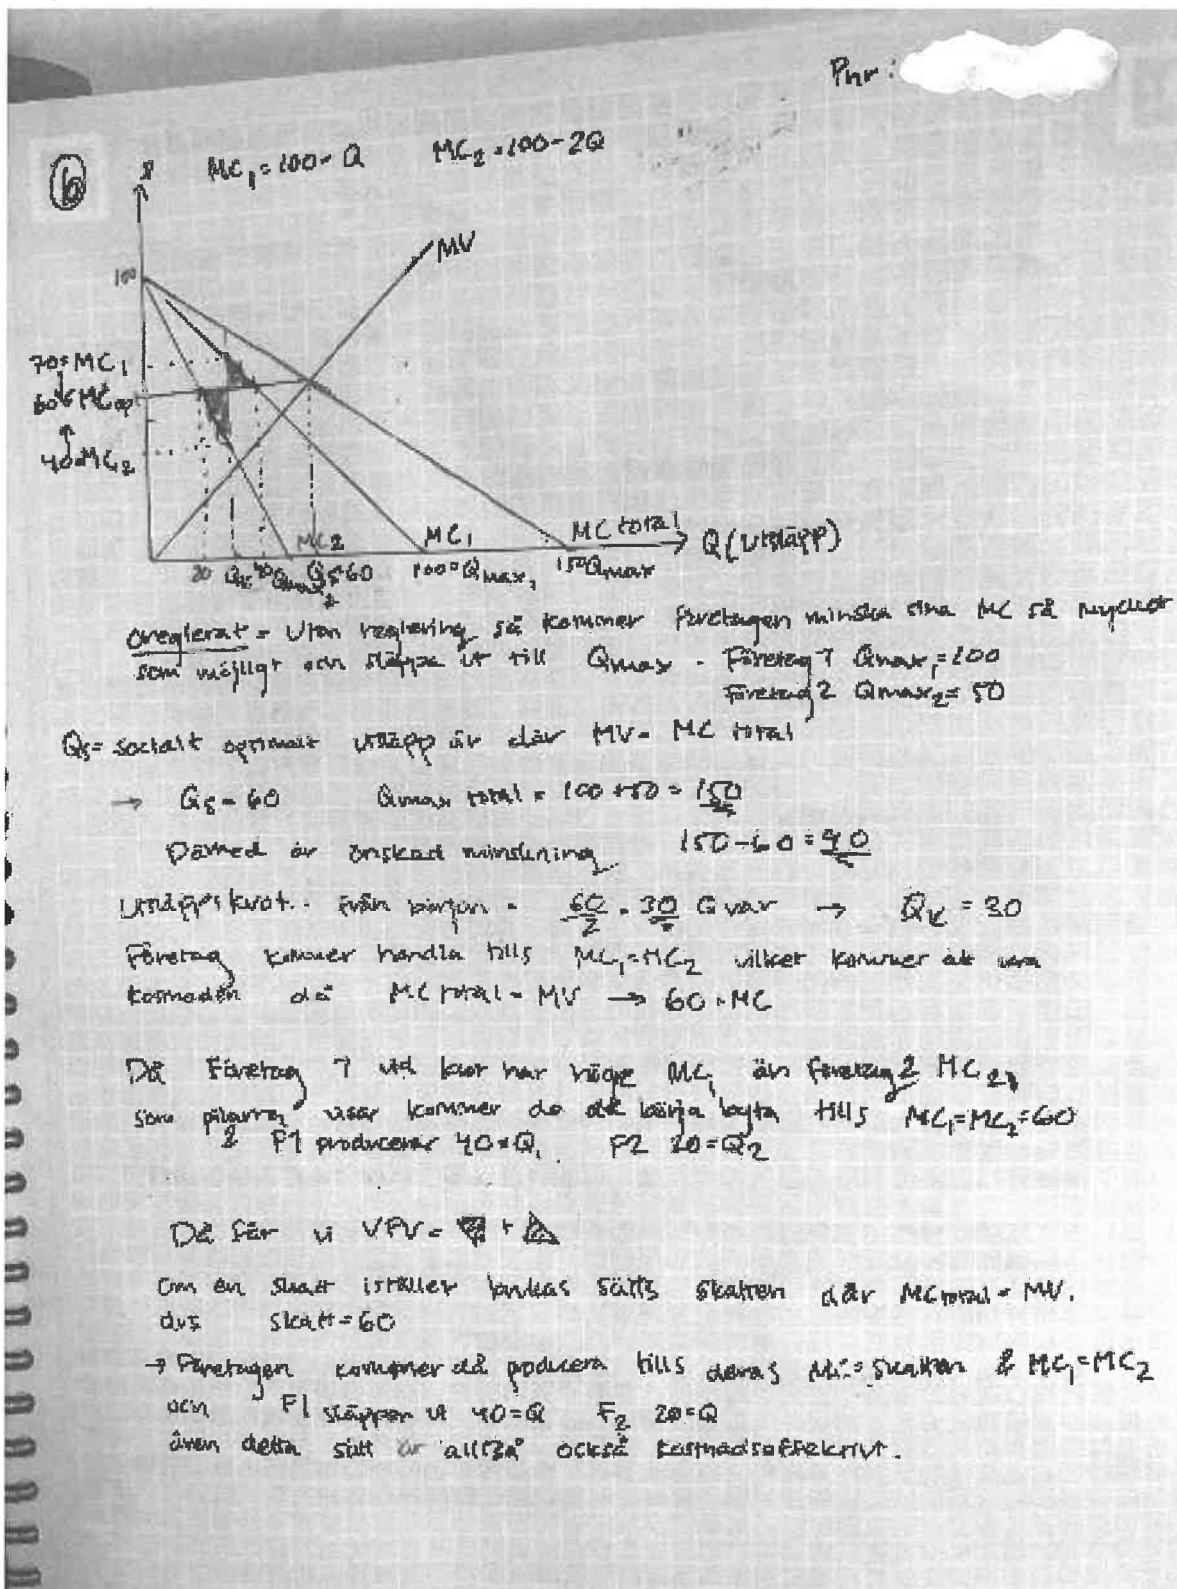 Pnr:
6
MC₁ = 100 - Q MC₂ = 100 - 2Q
MV
100
70 = MC₁
60 = MCop
40 = MC₂
MC₂ MC₁ MC total Q (utsläpp)
20 Qk 40 Qmax₂ Qs=60 100=Qmax₁ 150 Qmax
oreglerat = utan reglering så kommer företagen minska sina MC så mycket
som möjligt och släppa ut till Qmax - Företag 1 Qmax₁ = 100
Företag 2 Qmax₂ = 50
Qs = socialt optimalt utsläpp är där MV = MC total
→ Qs = 60 Qmax total = 100 + 50 = 150
Därmed är önskad minskning 150 - 60 = 90
Utsläppskvot. från början = 60/2 = 30 Q var → Qk = 30
Företag kommer handla tills MC₁ = MC₂ vilket kommer att vara
kostnaden då MC total = MV → 60 = MC
Då Företag 1 vid kvot har högre MC₁ än företag 2 MC₂,
som pilarna visar kommer de då börja byta tills MC₁ = MC₂ = 60
& F1 producerar 40 = Q₁ F2 20 = Q₂
Då får vi VFV = +
Om en skatt istället brukas sätts skatten där MC total = MV.
dvs skatt = 60
→ Företagen kommer då producera tills deras MC = skatten & MC₁ = MC₂
och F1 släpper ut 40 = Q F₂ 20 = Q
även detta sätt är alltså också kostnadseffektivt.